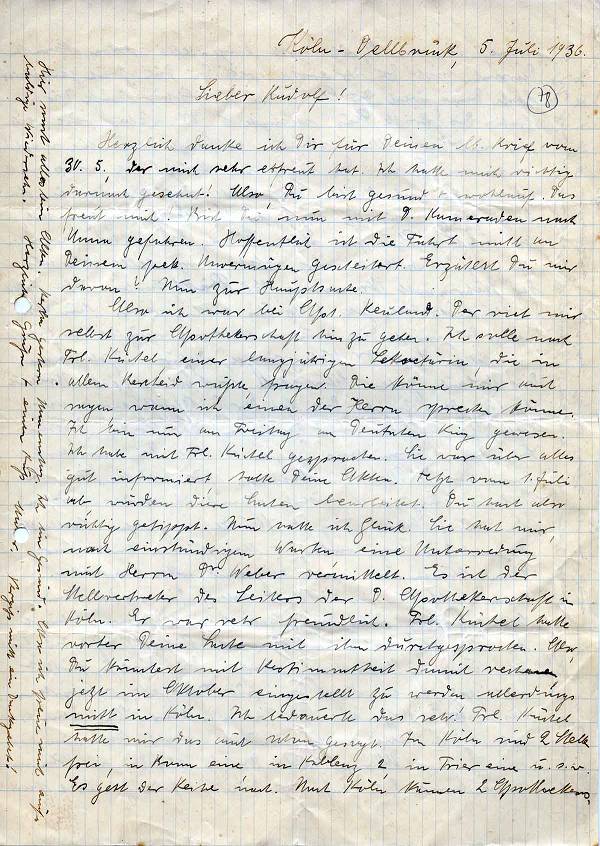 Köln-Dellbrück, 5. Juli 1936.
78
Lieber Rudolf!
Herzlich danke ich Dir für Deinen lb. Brief vom
30. 5, der mich sehr erfreut hat. Ich hatte mich richtig
darnach gesehnt! Also, Du bist gesund + wohlauf. Das
freut mich! Bist Du nun mit D. Kameraden nach
gefahren. Hoffentlich ist die Fahrt nicht an
Deinem pek. Unvermögen gescheitert. Erzählst Du mir
davon? Nun zur Hauptsache.
Also ich war bei Apt. Keuland. Der riet mir
selbst zur Apothekerschaft hinzugehen. Ich solle nach
Frl. Küstel einer langjährigen Sekretärin, die in
allem Bescheid wüßte, fragen. Die könne mir auch
sagen wann ich einen der Herrn sprechen könne.
Ich bin nun am Freitag am Deutschen Ring gewesen.
Ich habe mit Frl. Küstel gesprochen. Sie war über alles
gut informiert, hatte Deine Akten. Jetzt vom 1. Juli
ab würden diese Sachen bearbeitet. Du hast also
richtig getippt. Nun hatte ich Glück. Sie hat mir,
nach einstündigem Warten eine Unterredung
mit Herrn Dr Weber vermittelt. Es ist der
Stellvertreter des Leiters der D. Apothekerschaft in
Köln. Er war sehr freundlich. Frl. Küstel hatte
vorher Deine Sache mit ihm durchgesprochen. Also,
Du könntest mit Bestimmtheit damit rechnen
jetzt im Oktober eingestellt zu werden allerdings
nicht in Köln. Ich bedauerte das sehr. Frl. Küstel
hatte mir das auch schon gesagt. In Köln sind 2 Stellen
frei, in Bonn eine in Koblenz 2, in Trier eine u. s. w.
Es geht der Reihe nach. Nach Köln kommen 2 Apothekers
Hier sonst alles beim Alten. Ich bin gesund. Also ich freue mich aufs
Wiedersehn. Herzliche Grüße + einen Kuß Vergiß nicht ein